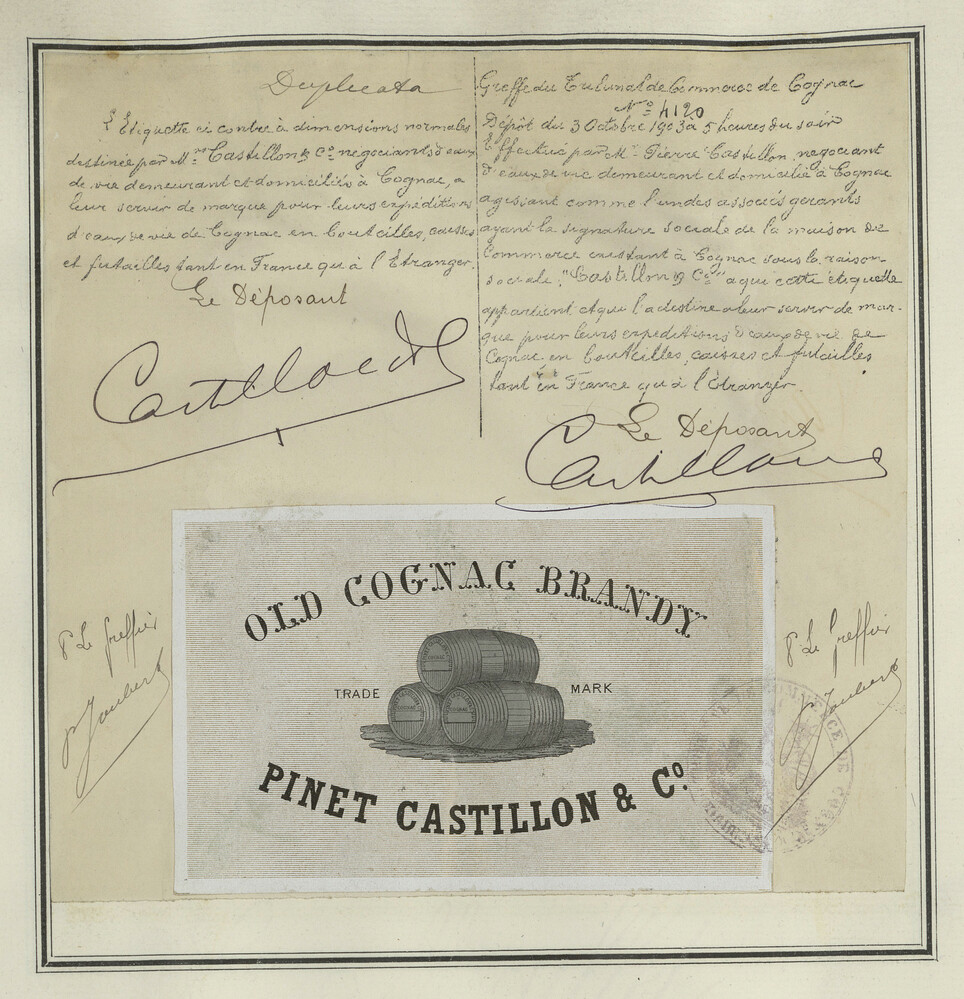 Duplicata
L'Etiquette ci contre à dimensions normales
destinée par Mrs Castillon & Co négociants d'eaux
de vie demeurant et domiciliés à Cognac, a
leur servir de marque pour leurs expéditions
d'eaux de vie de Cognac en bouteilles, caisses
et futailles tant en France qu'à l'Etranger.
Le Déposant
Castillon & Co
Greffe du Tribunal de Commerce de Cognac
No 4120
Dépôt du 3 Octobre 1903 à 5 heures du soir
Effectué par Mr Pierre Castillon, négociant
d'eaux de vie demeurant et domicilié à Cognac
agissant comme l'un des associés gérants
ayant la signature sociale de la maison de
Commerce existant à Cognac sous la raison
sociale "Castillon & Co" à qui cette étiquette
appartient et qui l'a destine a leur servir de mar-
que pour leurs expéditions d'eaux de vie de
Cognac en bouteilles, caisses et futailles
tant en France qu'à l'Etranger.
Le Déposant
Castillon &
OLD COGNAC BRANDY
TRADE MARK
COGNAC
PINET CASTILLON & Co.
P Le Greffier
Joubert
P Le Greffier
Joubert
COMMERCE DE COGNAC